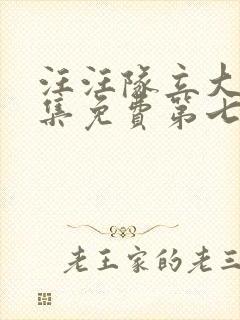 汪汪隊立大
集免費第七
老王家的老三